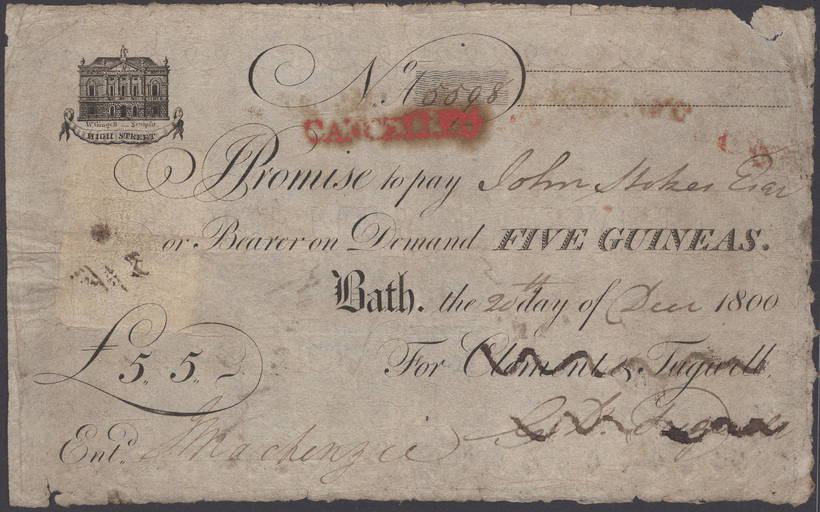 No A5598
W. Gingell Sculpsit
HIGH STREET
CANCELLED
I Promise to pay John Stokes Esqr
or Bearer on Demand FIVE GUINEAS.
Bath. the 20th day of Decr 1800
£5,, 5,,
For Clement & Tugwell.
Entd. J Mackenzie